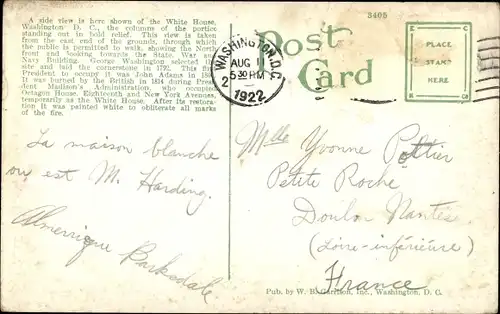 A side view is here shown of the White House,
Washington D. C., the columns of the portico
standing out in bold relief. This view is taken
from the east end of the grounds, through which
the public is permitted to walk, showing the North
front and looking towards the State, War and
Navy Building. George Washington selected the
site and laid cornerstone in 1792. The first
President to occupy it was John Adams in 180
It was burned by the British in 1814 during Pres-
dent Madison's Administration, who occupied
Octagon House, Eighteenth and New York Avenues,
temporarily as the White House. After its restora-
tion it was painted white to obliterate all marks
of the fire.
La maison blanche
ou est M. Harding.
Almerrique Barksdale
3405
Post
Card
WASHINGTON, D.C.
AUG 11
5 30 PM
1922
2
PLACE
STAMP
HERE
Mlle Yvonne Pottier
Petite Roche
Doulon Nantes
(Loire-inférieure)
France
Pub. by W. B. Garrison, Inc., Washington, D. C.